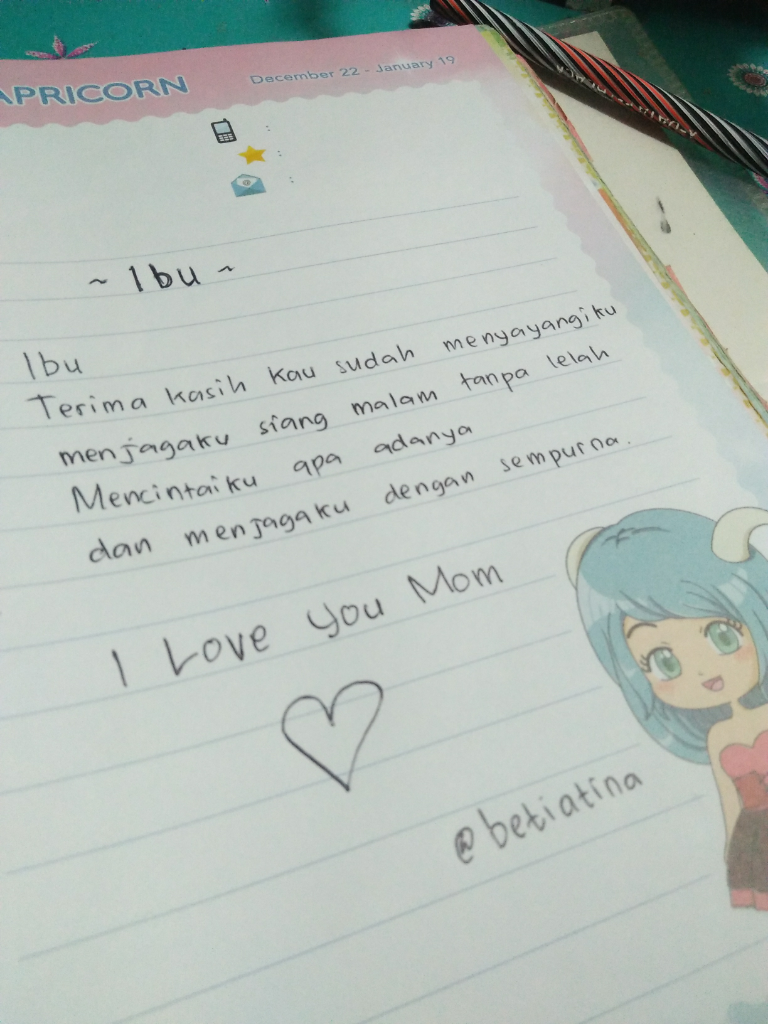 APRICORN
December 22 - January 19
:
:
:
~ Ibu ~
Ibu
Terima kasih kau sudah menyayangiku
menjagaku siang malam tanpa lelah
Mencintaiku apa adanya
dan menjagaku dengan sempurna.
I Love You Mom
@betiatina